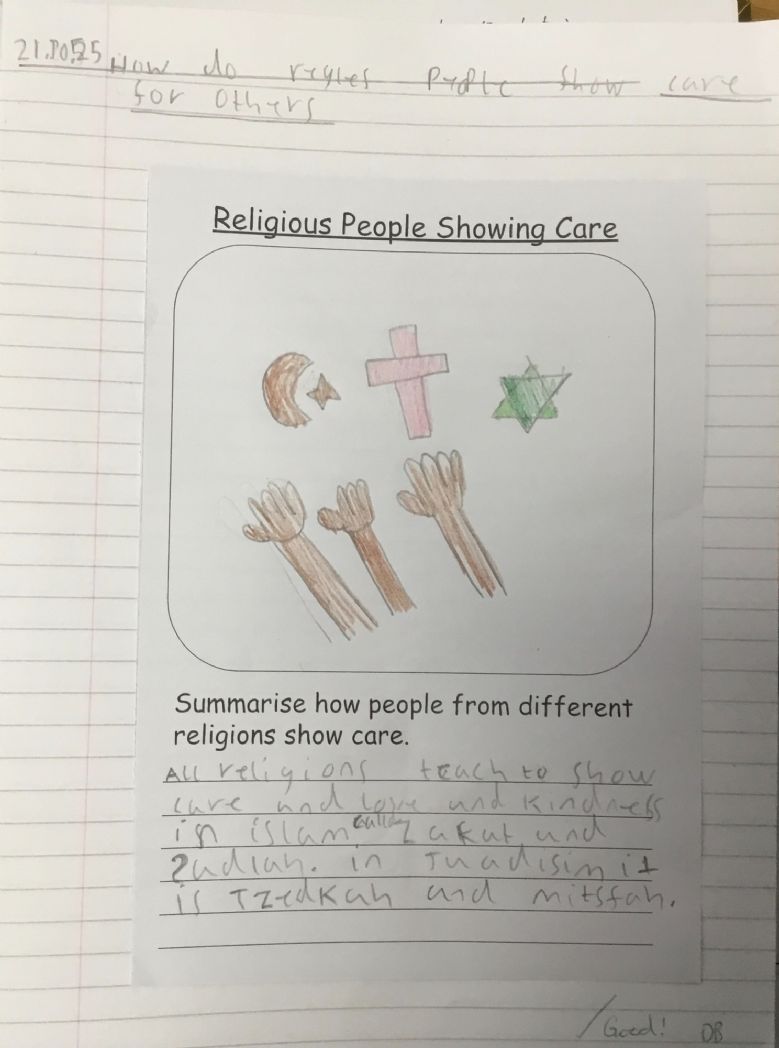 21.10.25 How do regles People show care
for others
Religious People Showing Care
Summarise how people from different
religions show care.
All religions teach to show
care and love and kindness
in islam called Zakat and
Sadiah. in Juadisim it
is Tzedkah and mitsfah.
Good! DB